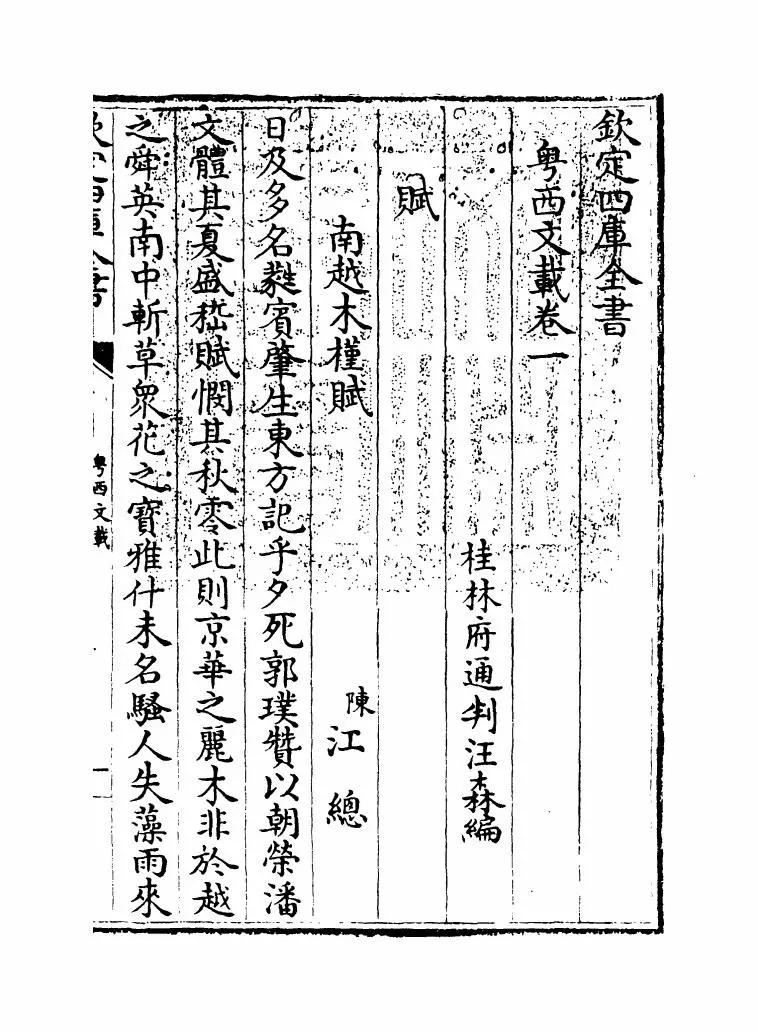 欽定四庫全書
粤西文載卷一
桂林府通判汪森編
賦
南越木槿賦
陳江總
日及多名蕤賓肇生東方記乎夕死郭璞贊以朝榮潘
文體其夏盛嵇賦憫其秋零此則京華之麗木非於越
之舜英南中斬草衆花之寶雅什未名騷人失藻雨來
欽定四庫全書
粤西文載
一